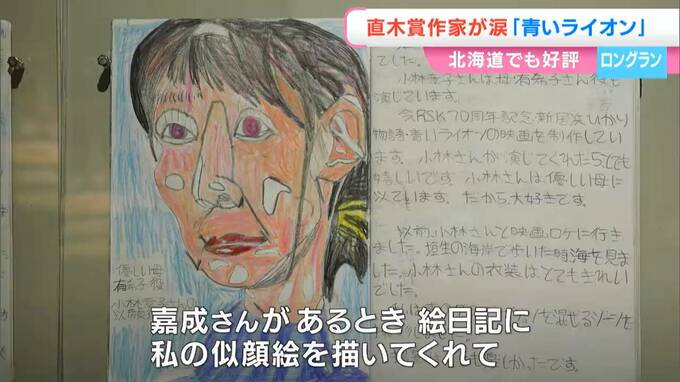 直木賞作家が涙「青いライオン」
北海道でも好評
ロングラン
でした。
小林幸子さんは母有希子さん役を
演じています。
今RSK70周年記念新居浜ひかり
物語青いライオンの映画を制作してい
ます。小林さんが演じてくれたらとても
嬉しいです。小林さんは優しい母に
似ています。だから大好きです。
以前、小林さんと映画ロケに行き
ました。垣生の海岸で歩いた時海を見ま
した。小林さんの衣装はとてもきれい
でした。
を混ぜるシーンを
かったです。
優しい母
有希子役
小林
嘉成さんが あるとき 絵日記に
私の似顔絵を描いてくれて